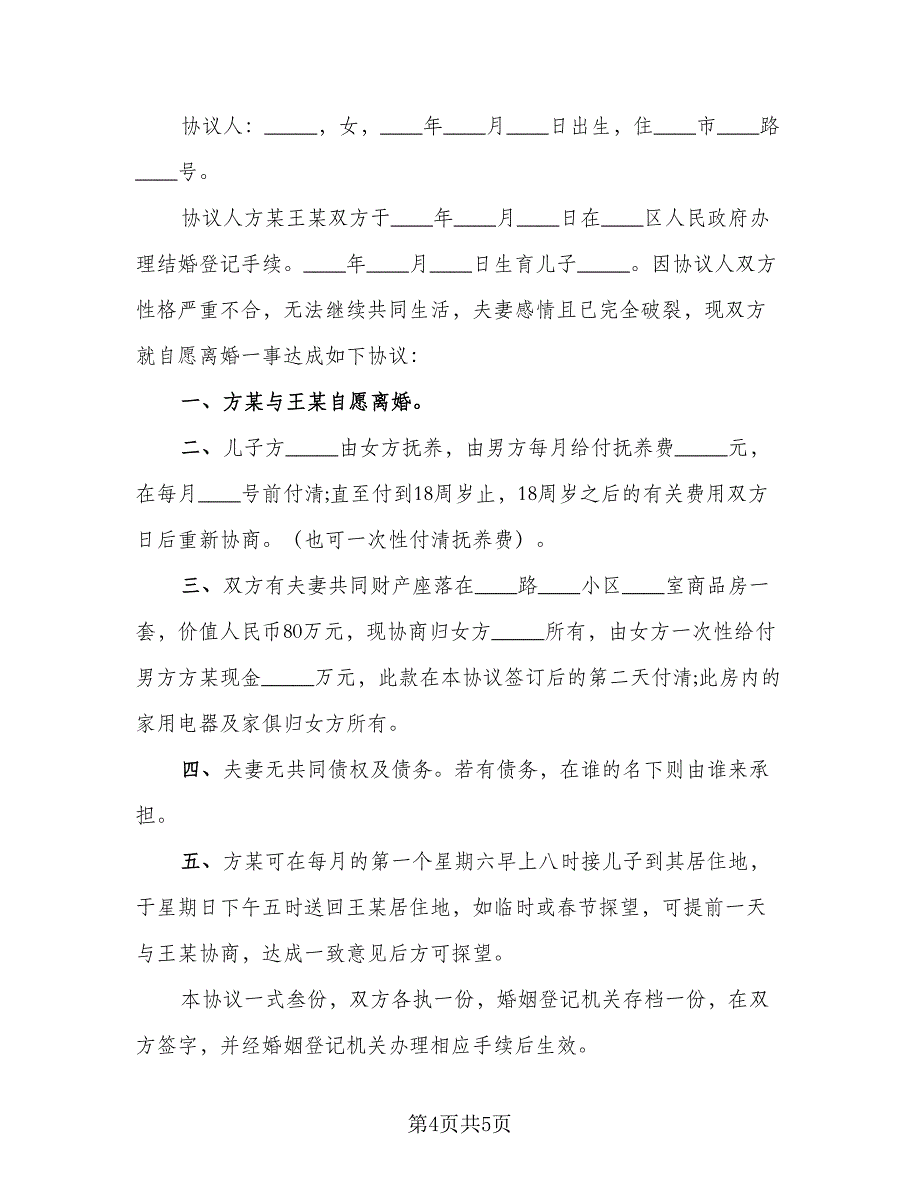 协议人：_____，女，____年____月____日出生，住____市____路
____号。
协议人方某王某双方于____年____月____日在____区人民政府办
理结婚登记手续。____年____月____日生育儿子_____。因协议人双方
性格严重不合，无法继续共同生活，夫妻感情且已完全破裂，现双方
就自愿离婚一事达成如下协议：
一、方某与王某自愿离婚。
二、儿子方_____由女方抚养，由男方每月给付抚养费_____元，
在每月____号前付清;直至付到18周岁止，18周岁之后的有关费用双方
日后重新协商。（也可一次性付清抚养费）。
三、双方有夫妻共同财产座落在____路____小区____室商品房一
套，价值人民币80万元，现协商归女方_____所有，由女方一次性给付
男方方某现金_____万元，此款在本协议签订后的第二天付清;此房内的
家用电器及家俱归女方所有。
四、夫妻无共同债权及债务。若有债务，在谁的名下则由谁来承
担。
五、方某可在每月的第一个星期六早上八时接儿子到其居住地，
于星期日下午五时送回王某居住地，如临时或春节探望，可提前一天
与王某协商，达成一致意见后方可探望。
本协议一式叁份，双方各执一份，婚姻登记机关存档一份，在双
方签字，并经婚姻登记机关办理相应手续后生效。
第4页共5页